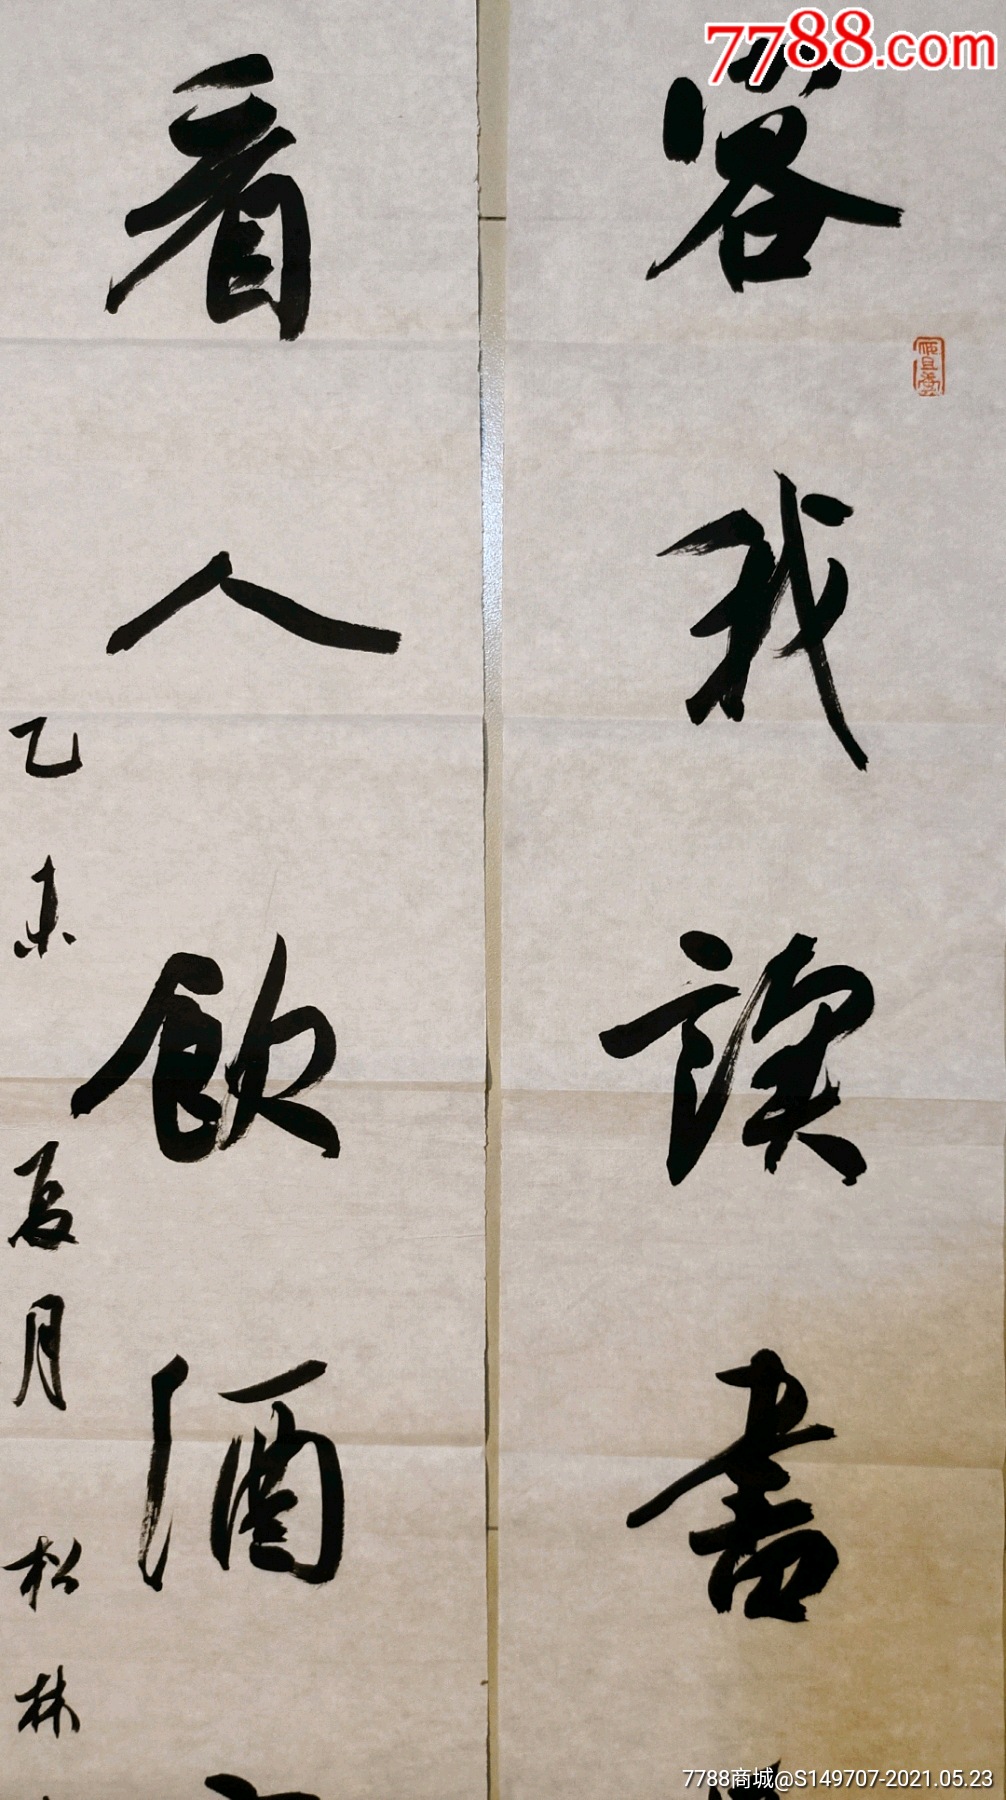 7788.com
容我讀書
看人飲酒
乙未夏月松林
7788商城@S149707-2021.05.23